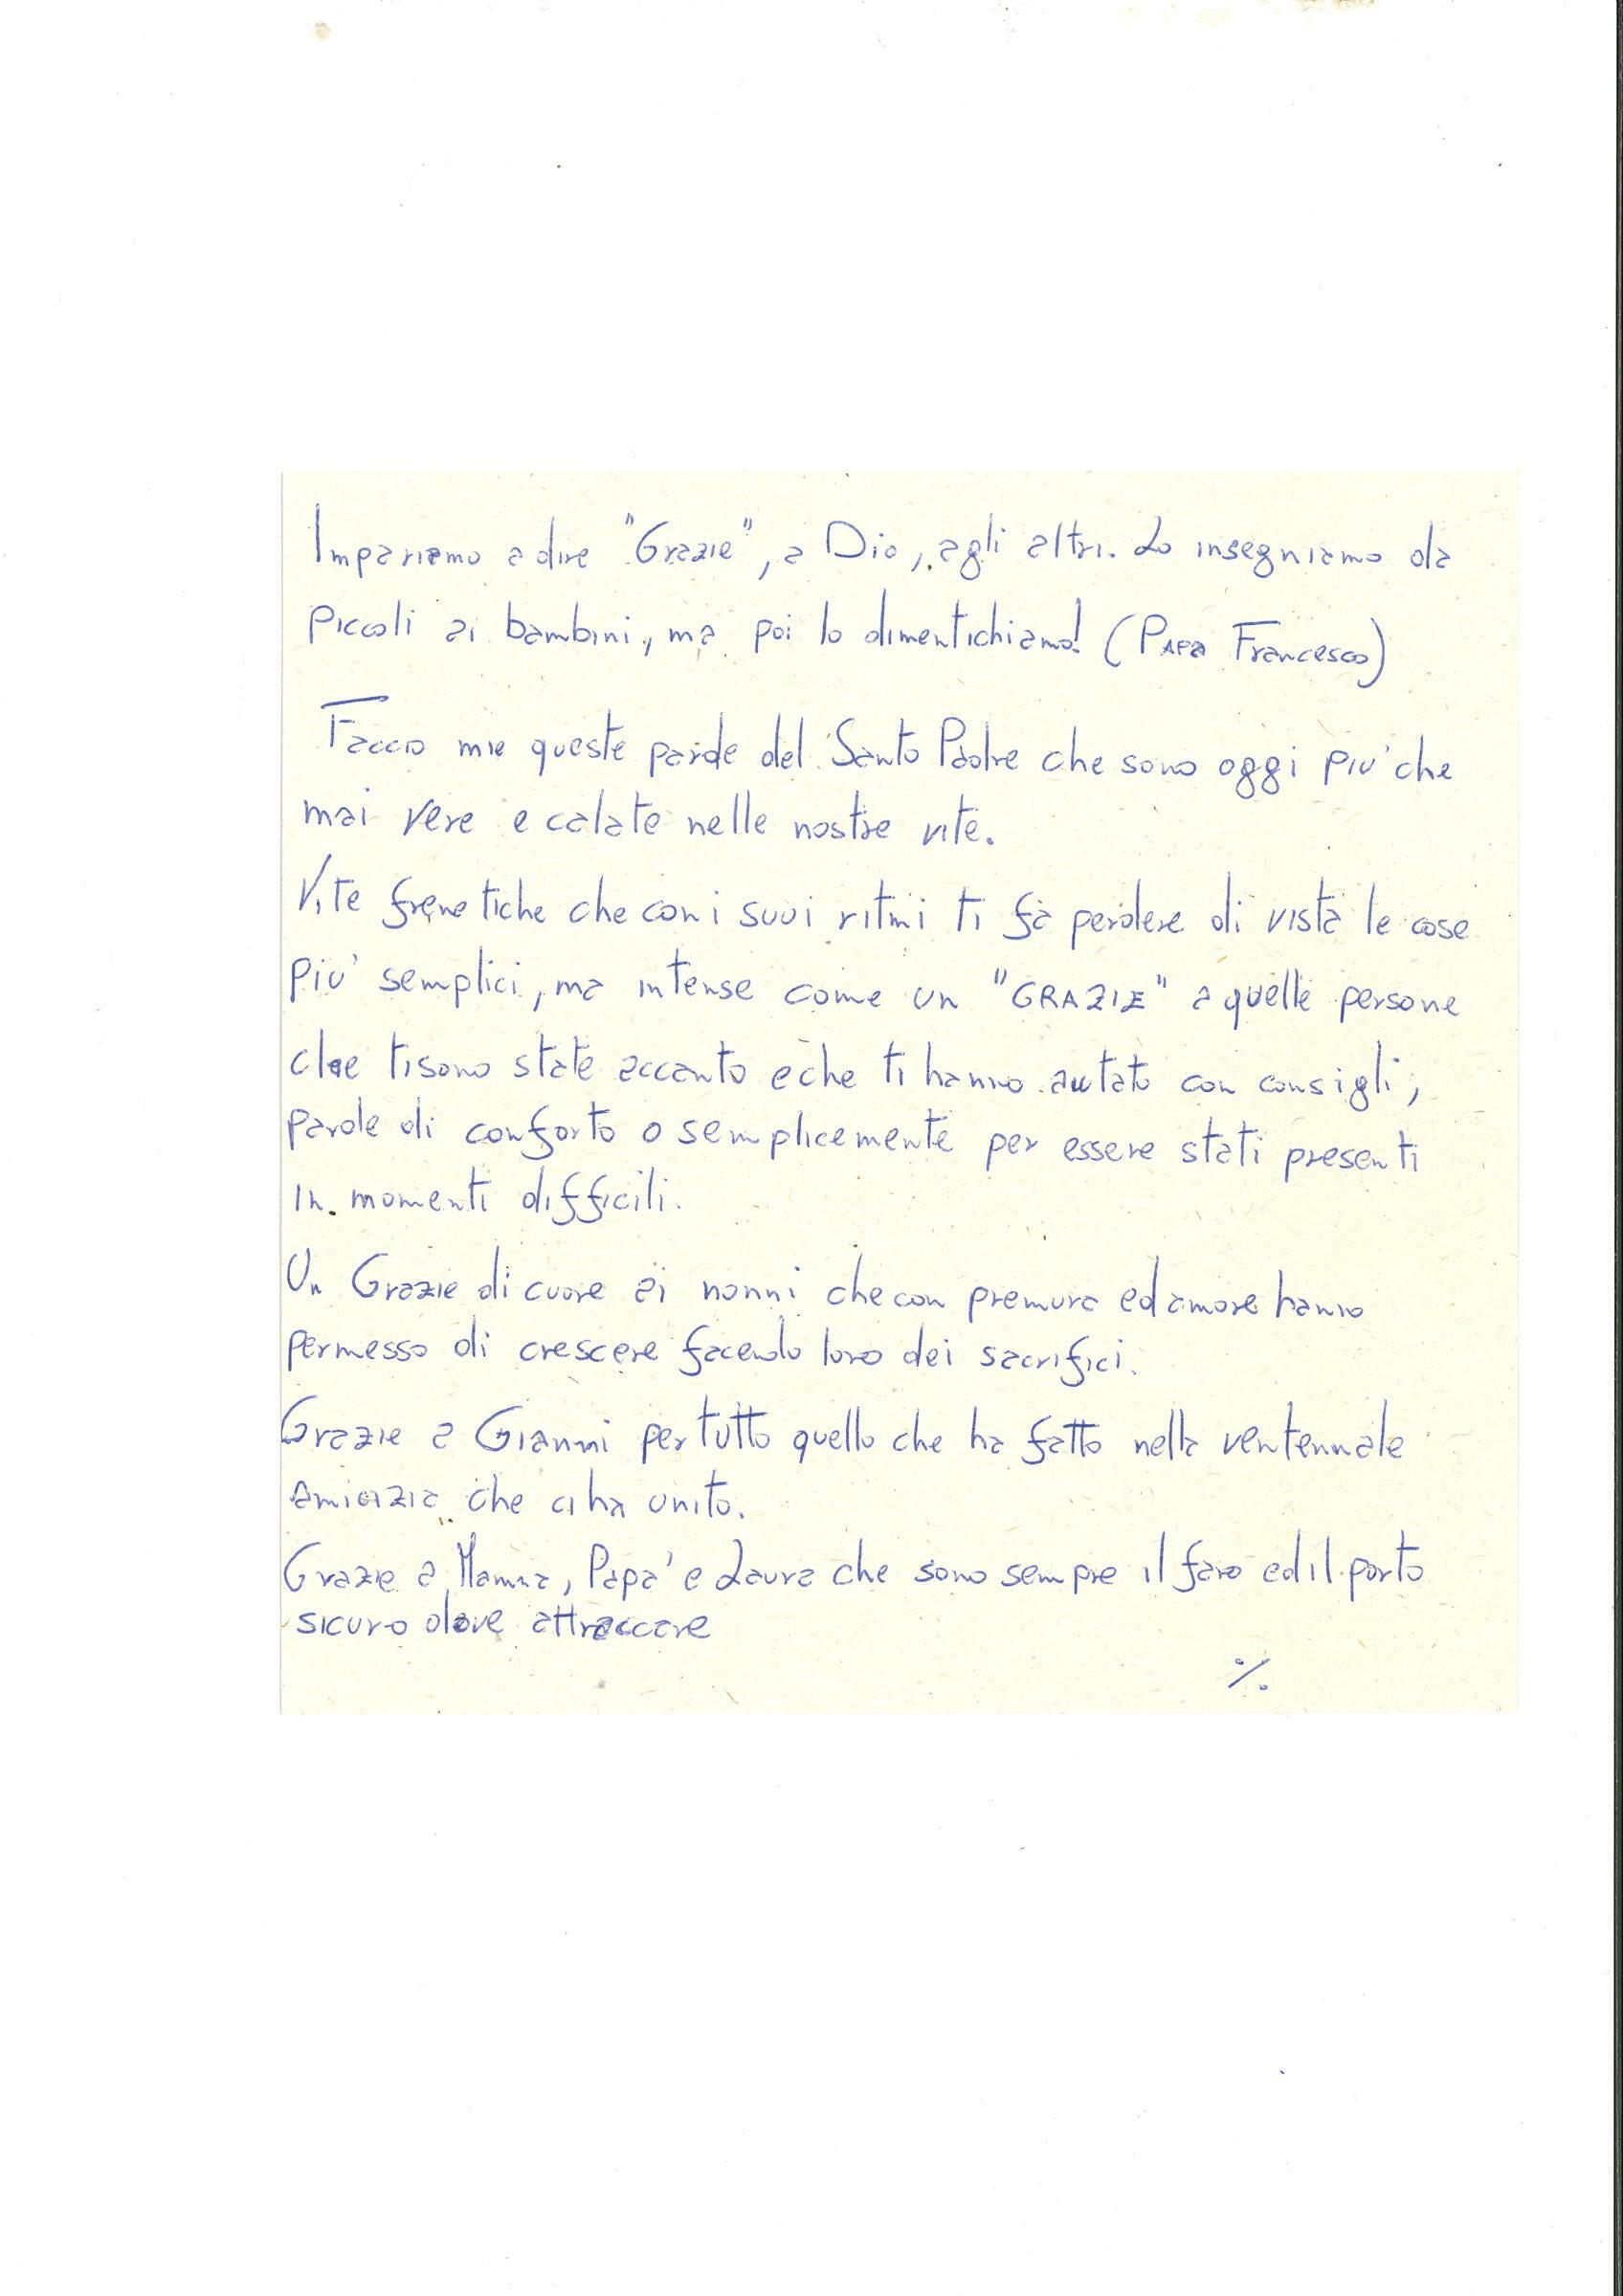 Impariamo a dire "Grazie", a Dio, agli altri. Lo insegniamo da
piccoli ai bambini, ma poi lo dimentichiamo! (Papa Francesco)
Faccio mie queste parole del Santo Padre che sono oggi piu' che
mai vere e calate nelle nostre vite.
Vite frenetiche che con i suoi ritmi ti fa perdere di vista le cose
piu' semplici, ma intense come un "GRAZIE" a quelle persone
che ti sono state accanto e che ti hanno aiutato con consigli,
parole di conforto o semplicemente per essere stati presenti
in momenti difficili.
Un Grazie di cuore ai nonni che con premura ed amore hanno
permesso di crescere facendo loro dei sacrifici.
Grazie a Gianni per tutto quello che ha fatto nella ventennale
amicizia che ci ha unito.
Grazie a Mamma, Papa' e Laura che sono sempre il faro ed il porto
sicuro dove attraccare
./.